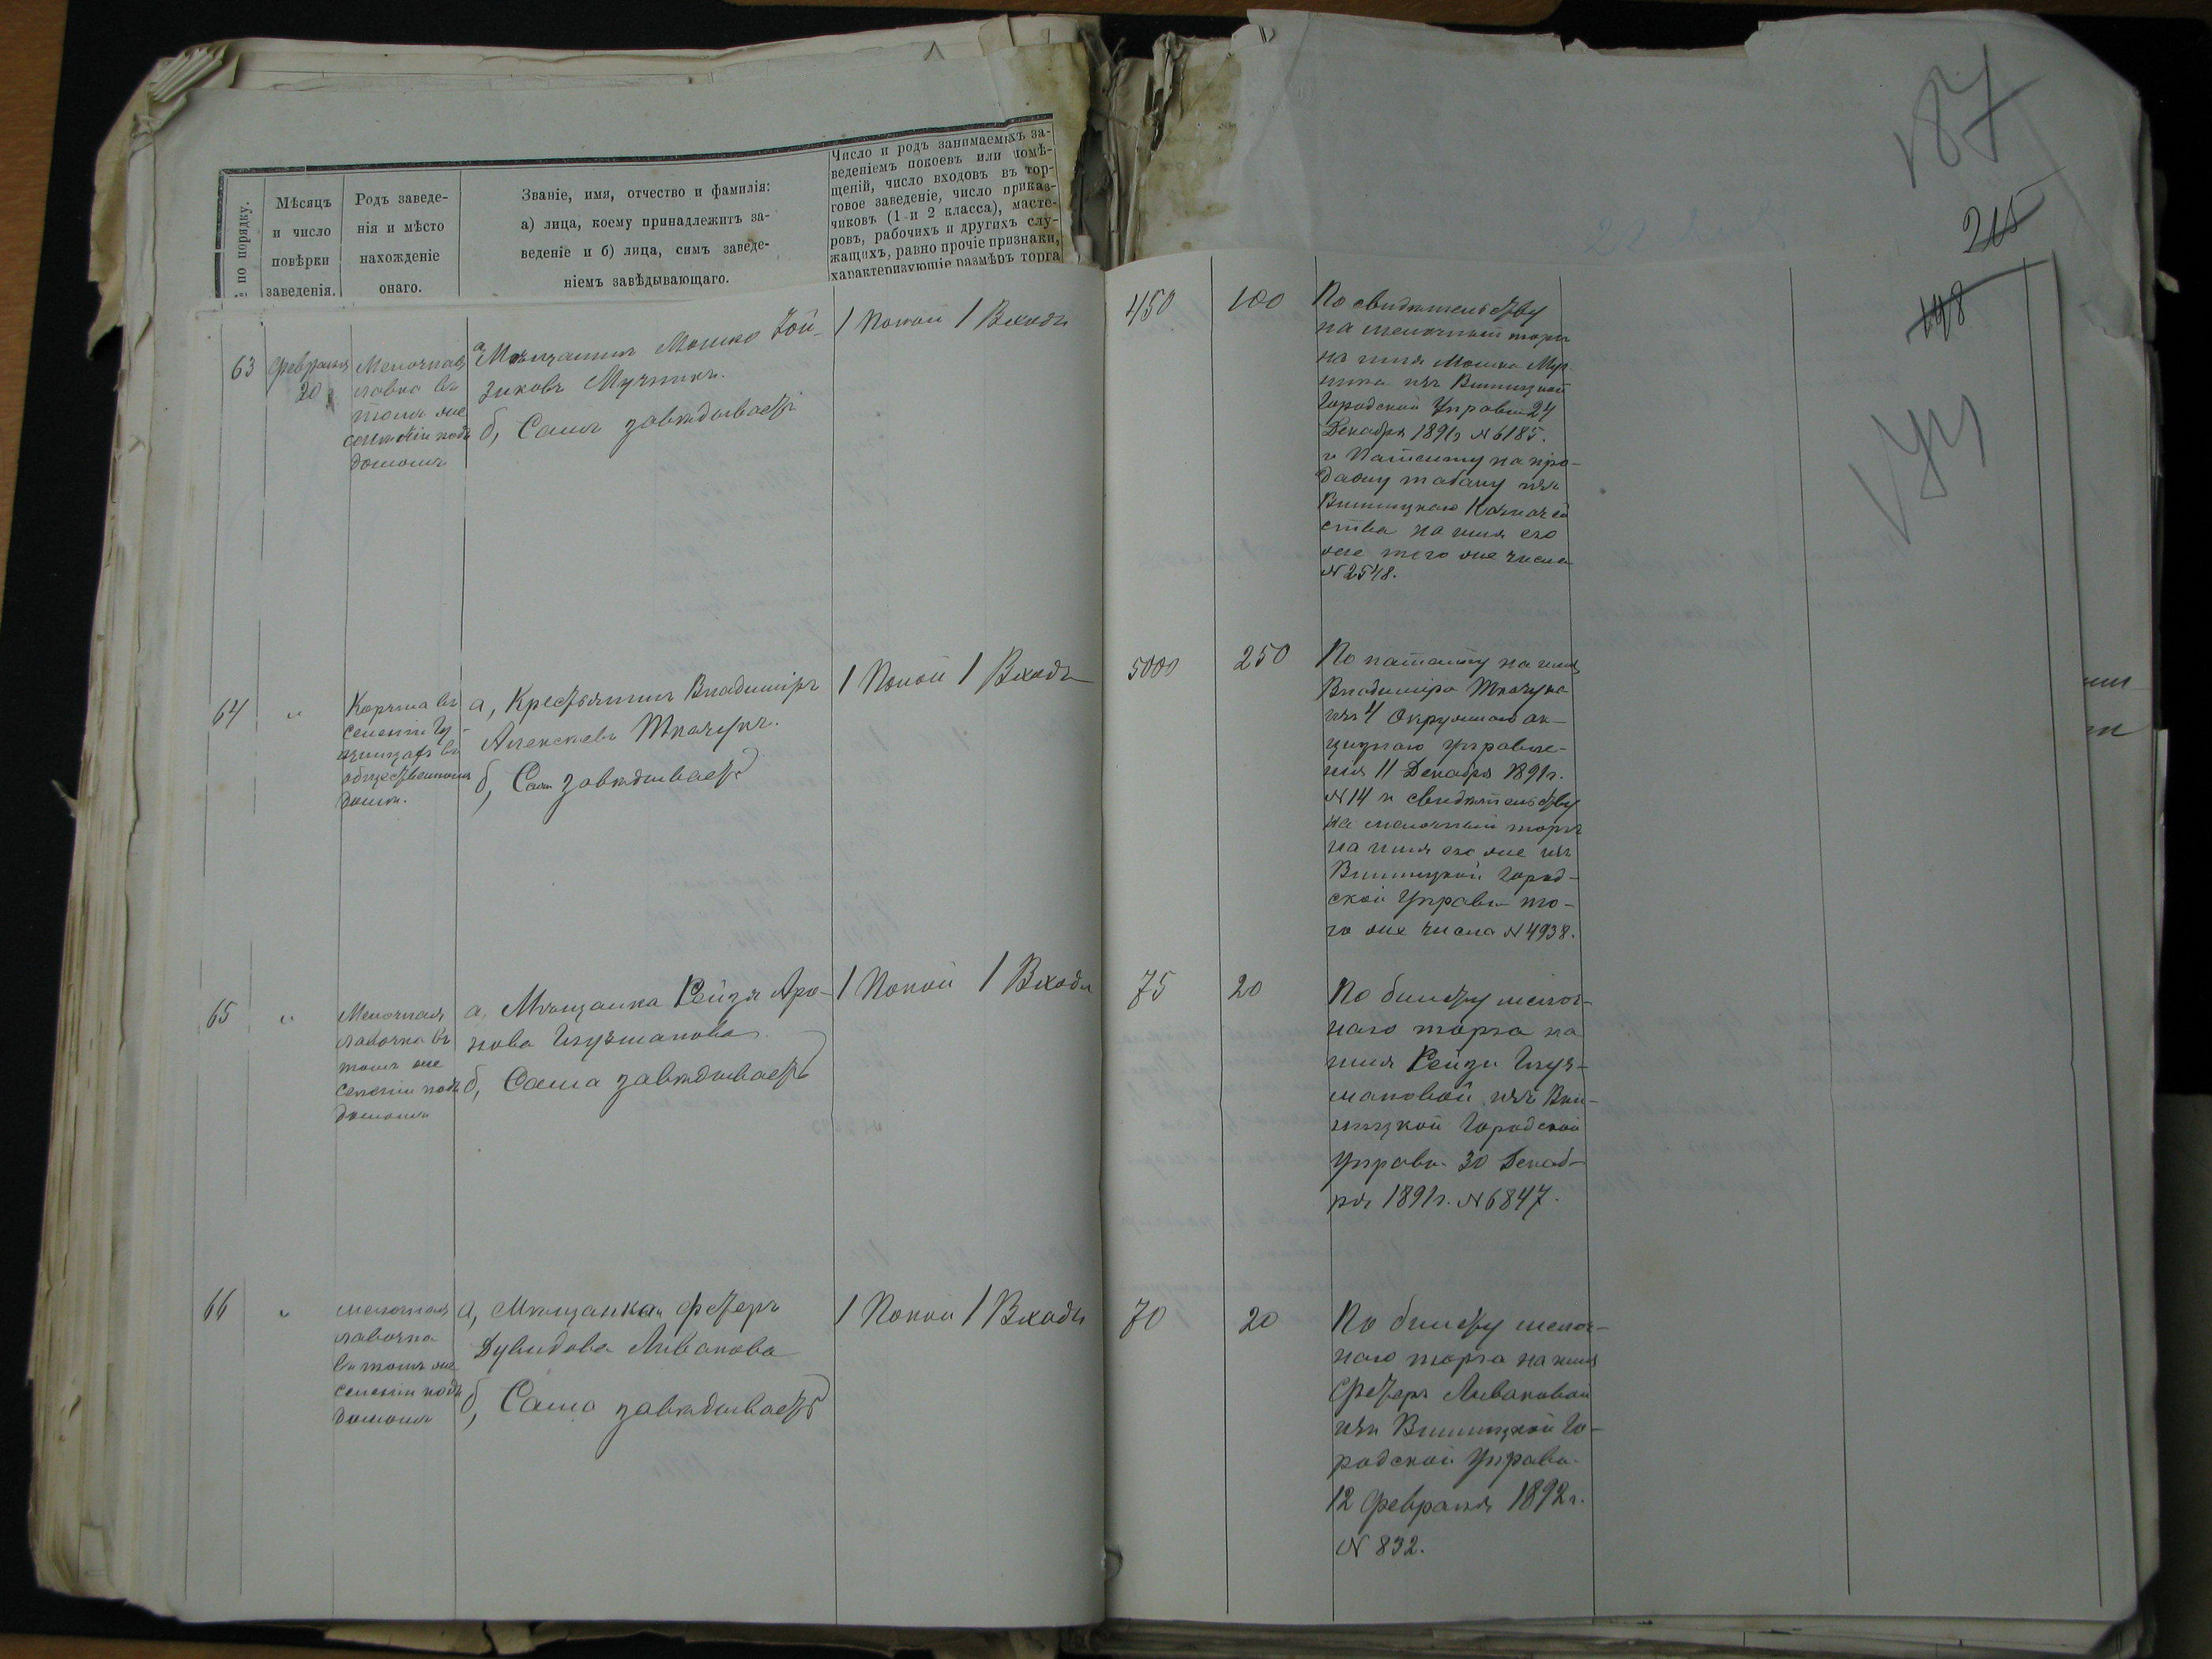 № по порядку.
Мѣсяцъ
и число
повѣрки
заведенія.
Родъ заведе-
нія и мѣсто
нахожденіе
онаго.
Званіе, имя, отчество и фамилія:
а) лица, коему принадлежитъ за-
веденіе и б) лица, симъ заведе-
ніемъ завѣдывающаго.
Число и родъ занимаемыхъ за-
веденіемъ покоевъ или помѣ-
щеній, число входовъ въ тор-
говое заведеніе, число приказ-
чиковъ (1 и 2 класса), масте-
ровъ, рабочихъ и другихъ слу-
жащихъ, равно прочіе признаки,
характеризующіе размѣръ торга
187
215
198
63
Февраля
20
Мелочная
лавка въ
томъ же
селеніи подъ
домомъ
а, Мѣщанинъ Мошко Зой-
зиковъ Мучникъ.
б, Самъ завѣдываетъ
1 Покой 1 Входъ
450
100
По свидѣтельству
на мелочный торгъ
на имя Мошка Муч-
ника изъ Винницкой
Городской Управы 24
Декабря 1891г №6185.
и Патенту на про-
дажу табаку изъ
Винницкаго Казначей
ства на имя его
же того же числа
№2548.
64
"
Корчма въ
селеніи
въ
общественномъ
домѣ.
а, Крестьянинъ Владиміръ
Алексѣевъ Ткачукъ.
б, Самъ завѣдываетъ
1 Покой 1 Входъ
5000
250
По патенту на имя
Владиміра Ткачука
изъ 4 Окружнаго ак-
цизнаго управле-
нія 11 Декабря 1891г.
№14 и свидѣтельству
на мелочный торгъ
на имя его же изъ
Винницкой Город-
ской Управы то-
го же числа №4938.
65
"
Мелочная
лавочка въ
томъ же
селеніи подъ
домомъ
а, Мѣщанка Рейзя Аро-
нова Глузманова
б, Сама завѣдываетъ
1 Покой 1 Входъ
75
20
По билету мелоч-
наго торга на
имя Рейзи Глуз-
мановой изъ Вин-
ницкой Городской
Управы 30 Декаб-
ря 1891г. №6847.
66
"
мелочная
лавочка
въ томъ же
селеніи подъ
домомъ
а, Мѣщанка Эстеръ
Дувидова Ливакова
б, Сама завѣдываетъ
1 Покой 1 Входъ
70
20
По билету мелоч-
наго торга на имя
Эстеръ Ливаковой
изъ Винницкой Го-
родской Управы
12 Февраля 1892г.
№ 832.